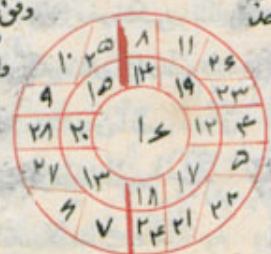 وفق
۱۰ ۲۵ ۸ ۱۱ ۲۶
۱۵ ۱۴ ۱۹ ۲۳
۹
۲۸ ۲۰ ۱۶ ۱۲ ۴
۲۷ ۱۳ ۱۷ ۵
۱۸
۶ ۷ ۲۴ ۲۱ ۲۲